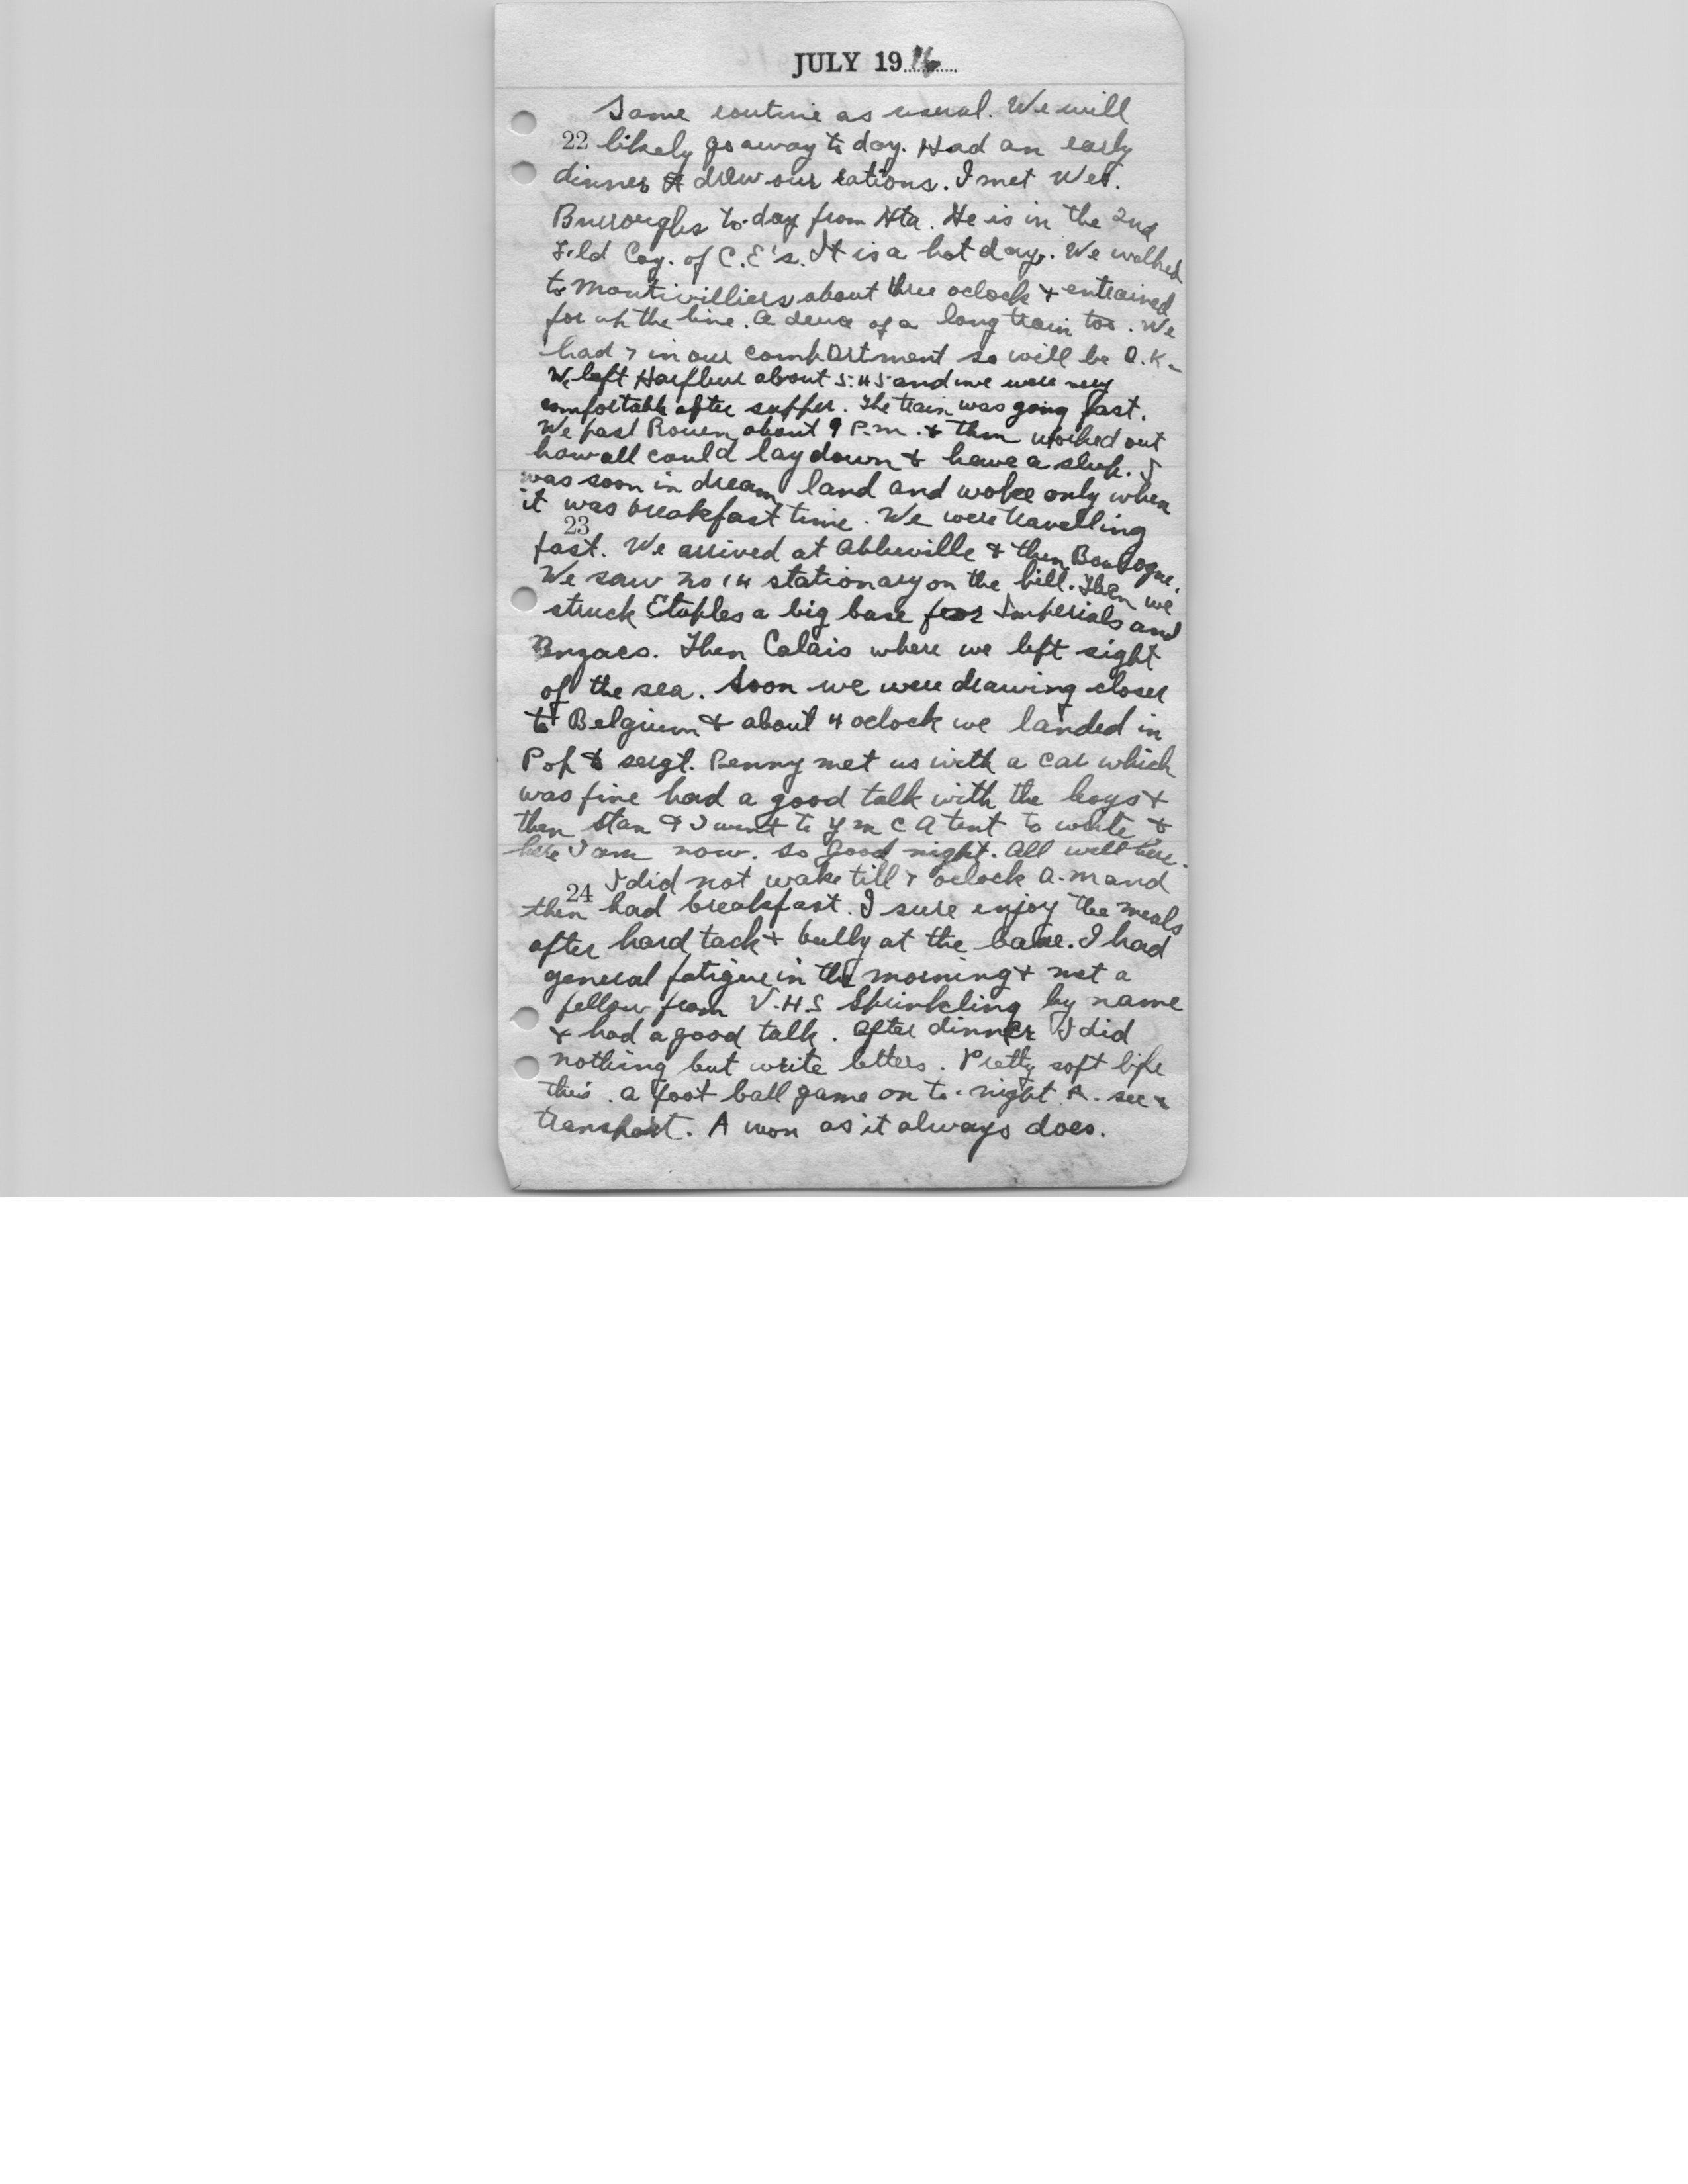 JULY 1916
Same routine as usual. We will
22 likely go away to day. Had an early
dinner & drew our rations. I met Wes.
Burroughs to-day from Hta. He is in the 2nd
Field Coy. of C.E's. It is a hot day. We walked
to Montivilliers about three oclock & entrained
for up the line. A deuce of a long train too. We
had 7 in our compartment so will be O.K.
We left Harfleur about 5:45 and we were very
comfortable after supper. The train was going fast.
We past Rouen about 9 P.m. & then worked out
how all could lay down & have a sleep. I
was soon in dream land and woke only when
it was breakfast time. We were travelling
23
fast. We arrived at Abbeville & then Boulogne.
We saw no 14 stationary on the hill. Then we
struck Etaples a big base for Imperials and
Anzacs. Then Calais where we left sight
of the sea. Soon we were drawing closer
to Belgium & about 4 oclock we landed in
Pop & sergt. Penny met us with a car which
was fine had a good talk with the boys &
then Stan & I went to Y m C A tent to write &
here I am now. so good night. All well here.
I did not wake till 7 oclock a.m and
24
then had breakfast. I sure enjoy the meals
after hard tack & bully at the base. I had
general fatigue in the morning & met a
fellow from V.H.S Sprinkling by name
& had a good talk. After dinner I did
nothing but write letters. Pretty soft life
this. a foot ball game on to-night A. sec
transport. A won as it always does.